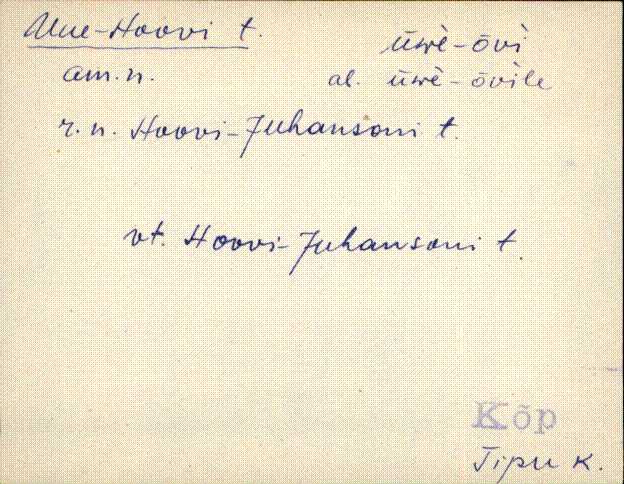 Uue-Hoovi t. üwè-ȭvì
am.n. al. üwè-ȭvìle
r.n. Hoovi-Juhansoni t.
vt. Hoovi-Juhansoni t.
Kõp
Tipu k.